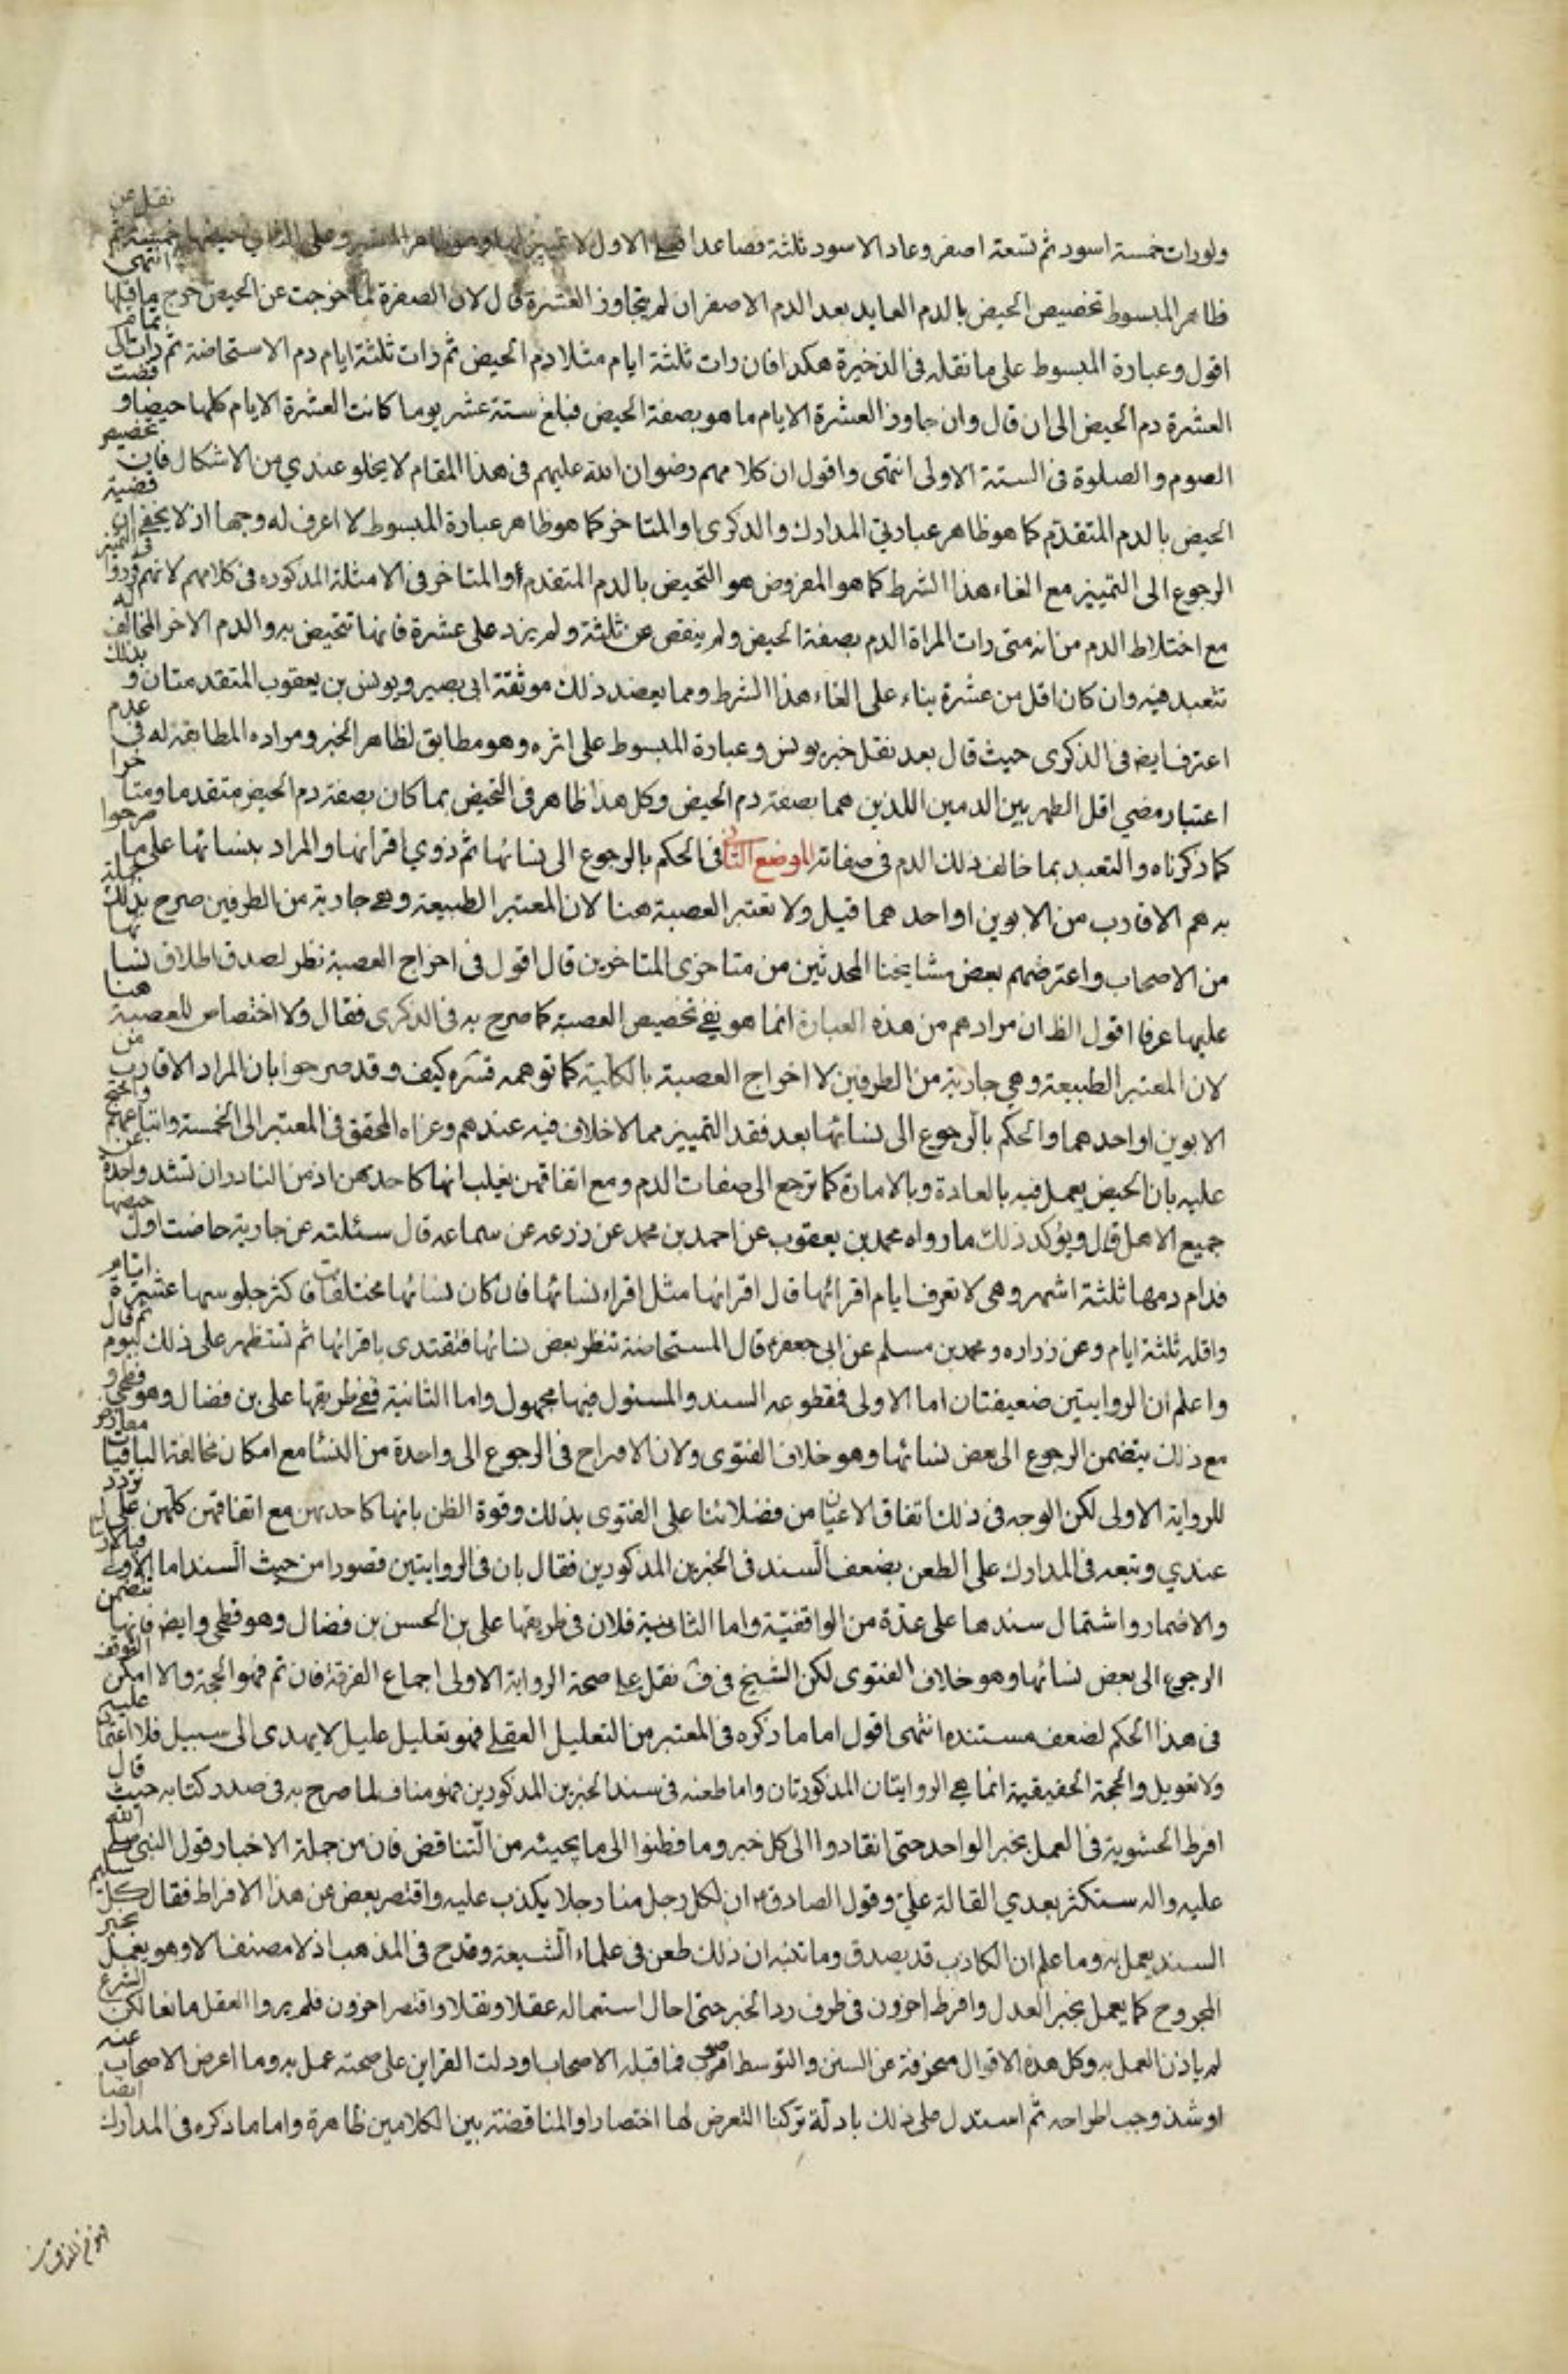 ولو رات خمسة اسود ثم تسعة اصفر وعاد الاسود ثلثة فصاعدا فعلى الاول لا تمييز لها وهو ظاهر المعتبر وعلى الثاني حيضها خمسة ثم نقل عن
ظاهر المبسوط تخصيص الحيض بالدم العايد بعد الدم الاصفر ان لم يتجاوز العشرة قال لان الصفرة لما خرجت عن الحيض خرج ما قبلها انتهى
اقول وعبارة المبسوط على ما نقله في الذخيرة هكذا فان رات ثلثة ايام مثلا دم الحيض ثم رات ثلثة ايام دم الاستحاضة ثم رات تمام
العشرة دم الحيض الى ان قال وان جاوز العشرة الايام ما هو بصفة الحيض فبلغ ستة عشر يوما كانت العشرة الايام كلها حيضا و قضت
الصوم والصلوة في الستة الاولى انتهى واقول ان كلامهم رضوان الله عليهم في هذا المقام لا يخلو عندي من الاشكال فان تخصيص
الحيض بالدم المتقدم كما هو ظاهر عبارتي المدارك والذكرى او المتاخر كما هو ظاهر عبارة المبسوط لا اعرف له وجها اذ لا يخفى ان قضية
الرجوع الى التمييز مع الغاء هذا الشرط كما هو المفروض هو التحيض بالدم المتقدم او المتاخر في الامثلة المذكوره في كلامهم لانهم قرروا في التميز
مع اختلاط الدم من انه متى رات المراة الدم بصفة الحيض ولم ينقص عن ثلثة ولم يزد على عشرة فانها تتحيض به والدم الاخر المخالف له
تتعبد فيه وان كان اقل من عشرة بناء على الغاء هذا الشرط ومما يعضد ذلك موثقة ابي بصير ويونس بن يعقوب المتقدمتان و بذلك
اعترف ايضا في الذكرى حيث قال بعد نقل خبر يونس وعبارة المبسوط على اثره وهو مطابق لظاهر الخبر ومراده المطابقة له في عدم
اعتبار مضي اقل الطهر بين الدمين اللذين هما بصفة دم الحيض وكل هذا ظاهر في التحيض بما كان بصفة دم الحيض متقدما ومتا خرا
كما ذكرناه والتعبد بما خالف ذلك الدم في صفاته الموضع الثاني في الحكم بالرجوع الى نسائها ثم ذوي اقرانها والمراد بنسائها على ما صرحوا
به هم الاقارب من الابوين او احدهما قيل ولا تعتبر العصبة هنا لان المعتبر الطبيعة وهي جارية من الطرفين صرح بذلك جملة
من الاصحاب واعترضهم بعض مشايخنا المحدثين من متاخري المتاخرين قال اقول في اخراج العصبة نظر لصدق اطلاق نسا ئها
عليها عرفا اقول الظ ان مرادهم من هذه العبارة انما هو نفي تخصيص العصبة كما صرح به في الذكرى فقال ولا اختصاص للعصبة هنا
لان المعتبر الطبيعة وهي جارية من الطرفين لا اخراج العصبة بالكلية كما توهمه قدس سره كيف وقد صرحوا بان المراد الاقارب من
الابوين او احدهما والحكم بالرجوع الى نسائها بعد فقد التمييز مما لا خلاف فيه عندهم وعزاه المحقق في المعتبر الى الخمسة واتباعهم واحتج
عليه بان الحيض يعمل فيه بالعادة وبالامارة كما ترجع الى صفات الدم ومع اتفاقهن يغلب انها كاحدهن اذ من النادر ان تشذ واحدة عن
جميع الاهل قال ويؤكد ذلك ما رواه محمد بن يعقوب عن احمد بن محمد عن زرعه عن سماعه قال سئلته عن جارية حاضت اول حيضها
فدام دمها ثلثة اشهر وهي لا تعرف ايام اقرائها قال اقرائها مثل اقراء نسائها فان كان نسائها مختلفات فاكثر جلوسها عشرة ايام
واقله ثلثة ايام وعن زراره ومحمد بن مسلم عن ابي جعفر ع قال المستحاضة تنظر بعض نسائها فتقتدى باقرائها ثم تستظهر على ذلك بيوم ثم قال
واعلم ان الروايتين ضعيفتان اما الاولى فمقطوعه السند والمسئول فيها مجهول واما الثانية ففي طريقها علي بن فضال وهو فطحي و
مع ذلك يتضمن الرجوع الى بعض نسائها وهو خلاف الفتوى ولان الاقراح في الرجوع الى واحدة من النسا مع امكان مخالفة الباقيات معارض
للرواية الاولى لكن الوجه في ذلك اتفاق الاعيان من فضلائنا على الفتوى بذلك وقوة الظن بانها كاحدهن مع اتفاقهن كلهن على تردد
عندي وتبعه في المدارك على الطعن بضعف السند في الخبرين المذكورين فقال بان في الروايتين قصورا من حيث السند اما الاولى فبالارسال
والاضمار واشتمال سندها على عدة من الواقفية واما الثانية فلان في طريقها علي بن الحسن بن فضال وهو فطحي وايض فانها تتضمن
الرجوع الى بعض نسائها وهو خلاف الفتوى لكن الشيخ في ف نقل على صحة الرواية الاولى اجماع الفرقة فان تم فهو الحجة والا امكن التوقف
في هذا الحكم لضعف مستنده انتهى اقول اما ما ذكره في المعتبر من التعليل العقلي فهو تعليل عليل لا يهدى الى سبيل فلا اعتماد عليه
ولا تعويل والحجة الحقيقية انما هي الروايتان المذكورتان واما طعنه في سند الخبرين المذكورين فهو مناف لما صرح به في صدر كتابه حيث قال
افرط الحشوية في العمل بخبر الواحد حتى انقادوا الى كل خبر وما فطنوا الى ما يحيثه من التناقض فان من جملة الاخبار قول النبي صلى الله
عليه واله ستكثر بعدي القالة علي وقول الصادق ع ان لكل رجل منا رجلا يكذب عليه واقتصر بعض عن هذا الافراط فقال كل سليم
السند يعمل به وما علم ان الكاذب قد يصدق وما تنبه ان ذلك طعن في علماء الشيعة وقدح في المذهب اذ لا مصنف الا وهو يعمل بخبر
المجروح كما يعمل بخبر العدل وافرط اخرون في طرف رد الخبر حتى احال استعماله عقلا ونقلا واقتصر اخرون فلم يروا العقل مانعا لكن الشرع
لم ياذن العمل به وكل هذه الاقوال منحرفة عن السنن والتوسط اقرب فما قبله الاصحاب او دلت القراين على صحته عمل به وما اعرض الاصحاب عنه
او شذ وجب اطراحه ثم استدل على ذلك بادلة تركنا التعرض لها اختصارا والمناقضة بين الكلامين ظاهرة واما ما ذكره في المدارك ايضا